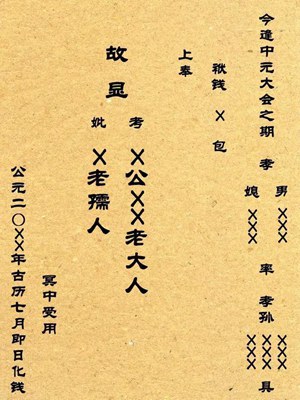 今逢中元大会之期 孝 男 XXX 媳 XXX 率 孝孙 XXX XXX 具
袱钱 X 包
上奉
故显 考 X公XX老大人
妣 X老孺人
冥中受用
公元二〇XX年古历七月即日化钱